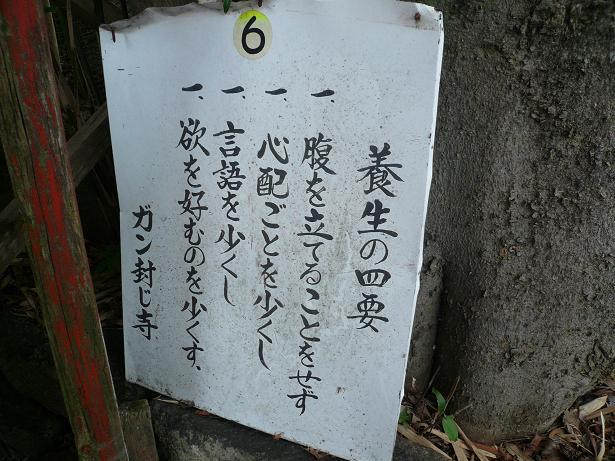 6
養生の四要
一、腹を立てることをせず
一、心配ごとを少くし
一、言語を少くし
一、欲を好むのを少くす、
ガン封じ寺